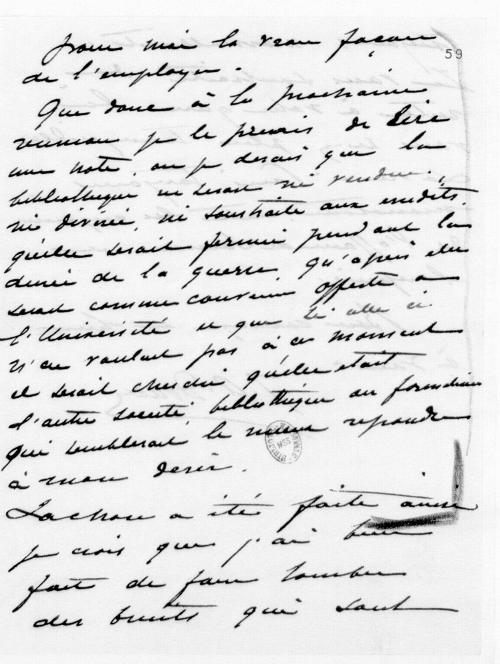 pour moi la vraie façon
59
de l'employer.
Que donc à la prochaine
réunion je le priais de lire
une note, où je disais que la
bibliothèque ne serait ni vendue,
ni divisée, ni soustraite aux érudits,
qu'elle serait fermée pendant la
durée de la guerre, qu'après elle
serait comme convenu offerte a
l'Université et que si elle ci
n'en voulait pas à ce moment
il serait cherché quelle était
l'autre société, bibliothèque ou fondation
qui semblerait le mieux repondre
à mon desir.
La chose a été faite ainsi
je crois que j'ai bien
fait de faire tomber
des bruits qui sont